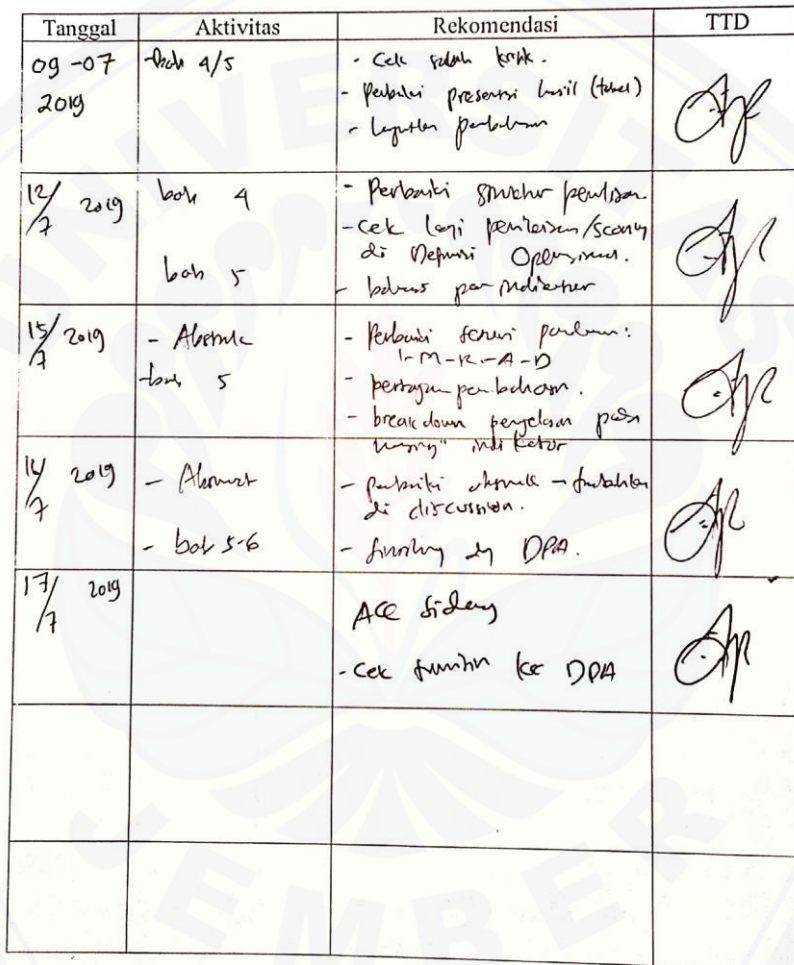 Tanggal Aktivitas Rekomendasi TTD
09-07 - bab 4/5 - Cek salah ketik.
2019 - Perbaiki presentasi hasil (tabel)
- Lanjutkan pembahasan
12/7 2019 bab 4 - Perbaiki struktur penulisan
- Cek lagi penilaian/scoring
di Definisi Operasional.
bab 5 - bahas per indikator
15/7 2019 - Abstrak - Perbaiki
- bab 5 I-M-R-A-D
- pertajam pembahasan.
- breakdown penjelasan pada
indikator
2019 - Abstrak - perbaiki abstrak - tambahkan
di discussion.
- bab 5-6 - DPA.
17/7 2019 ACC Sidang
- Cek ke DPA
UNIVERSITAS
JEMBER